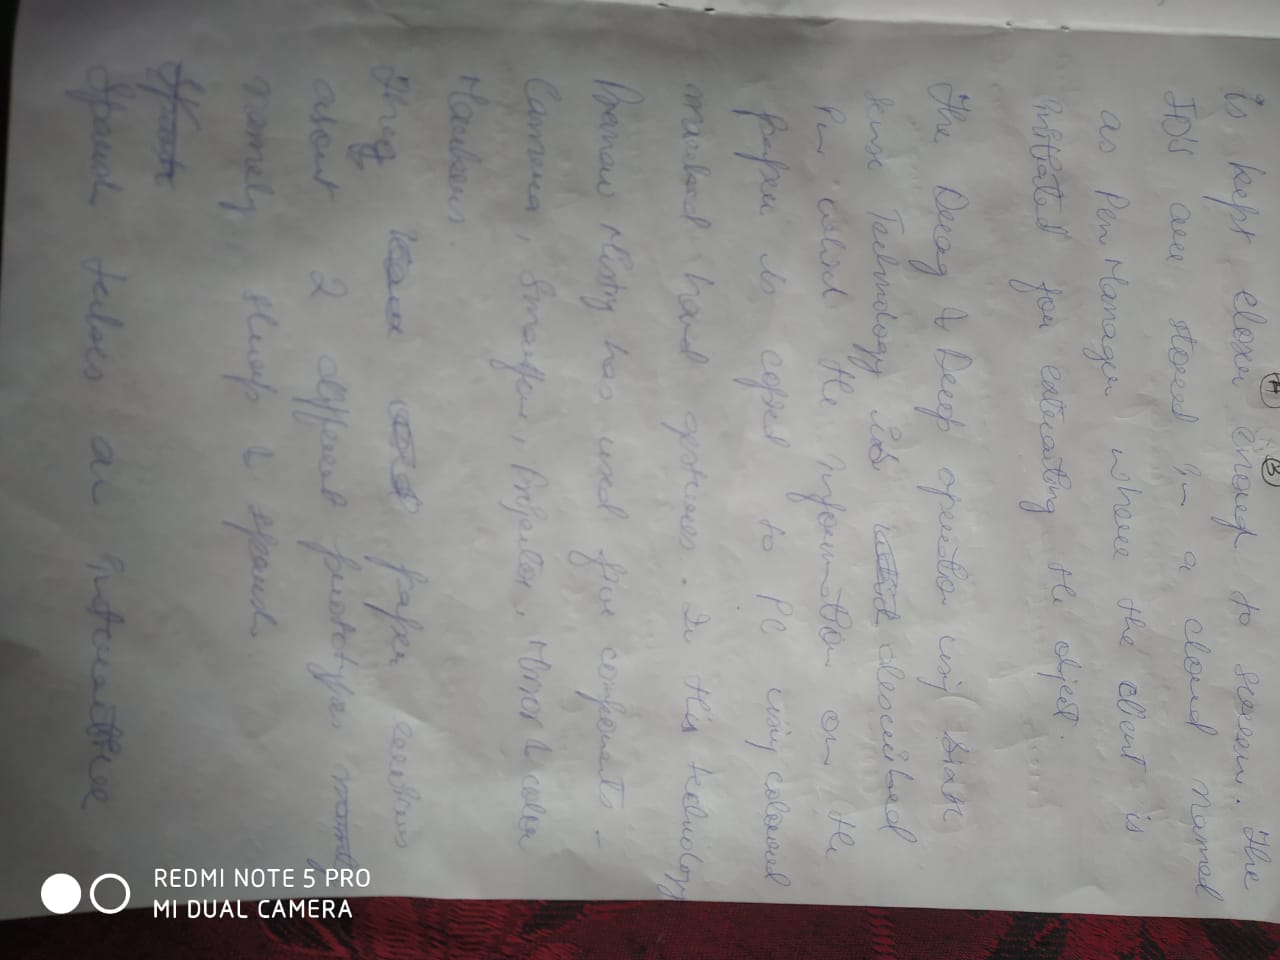 A B
is kept closer enough to screen. The
ID's are stored in a cloud named
as Pen Manager where the client is
initiated for extracting the object.
The Drag & Drop operation using Sixth
sense Technology is described
in which the information on the
paper is copied to PC using coloured
marked hand gestures. In this technology
Pranav Mistry has used five components -
Camera, Smartphone, Projector, Mirror & color
Markers.
paper mentions
about 2 different prototypes namely
namely &
Spark
takes an interactive
REDMI NOTE 5 PRO
MI DUAL CAMERA